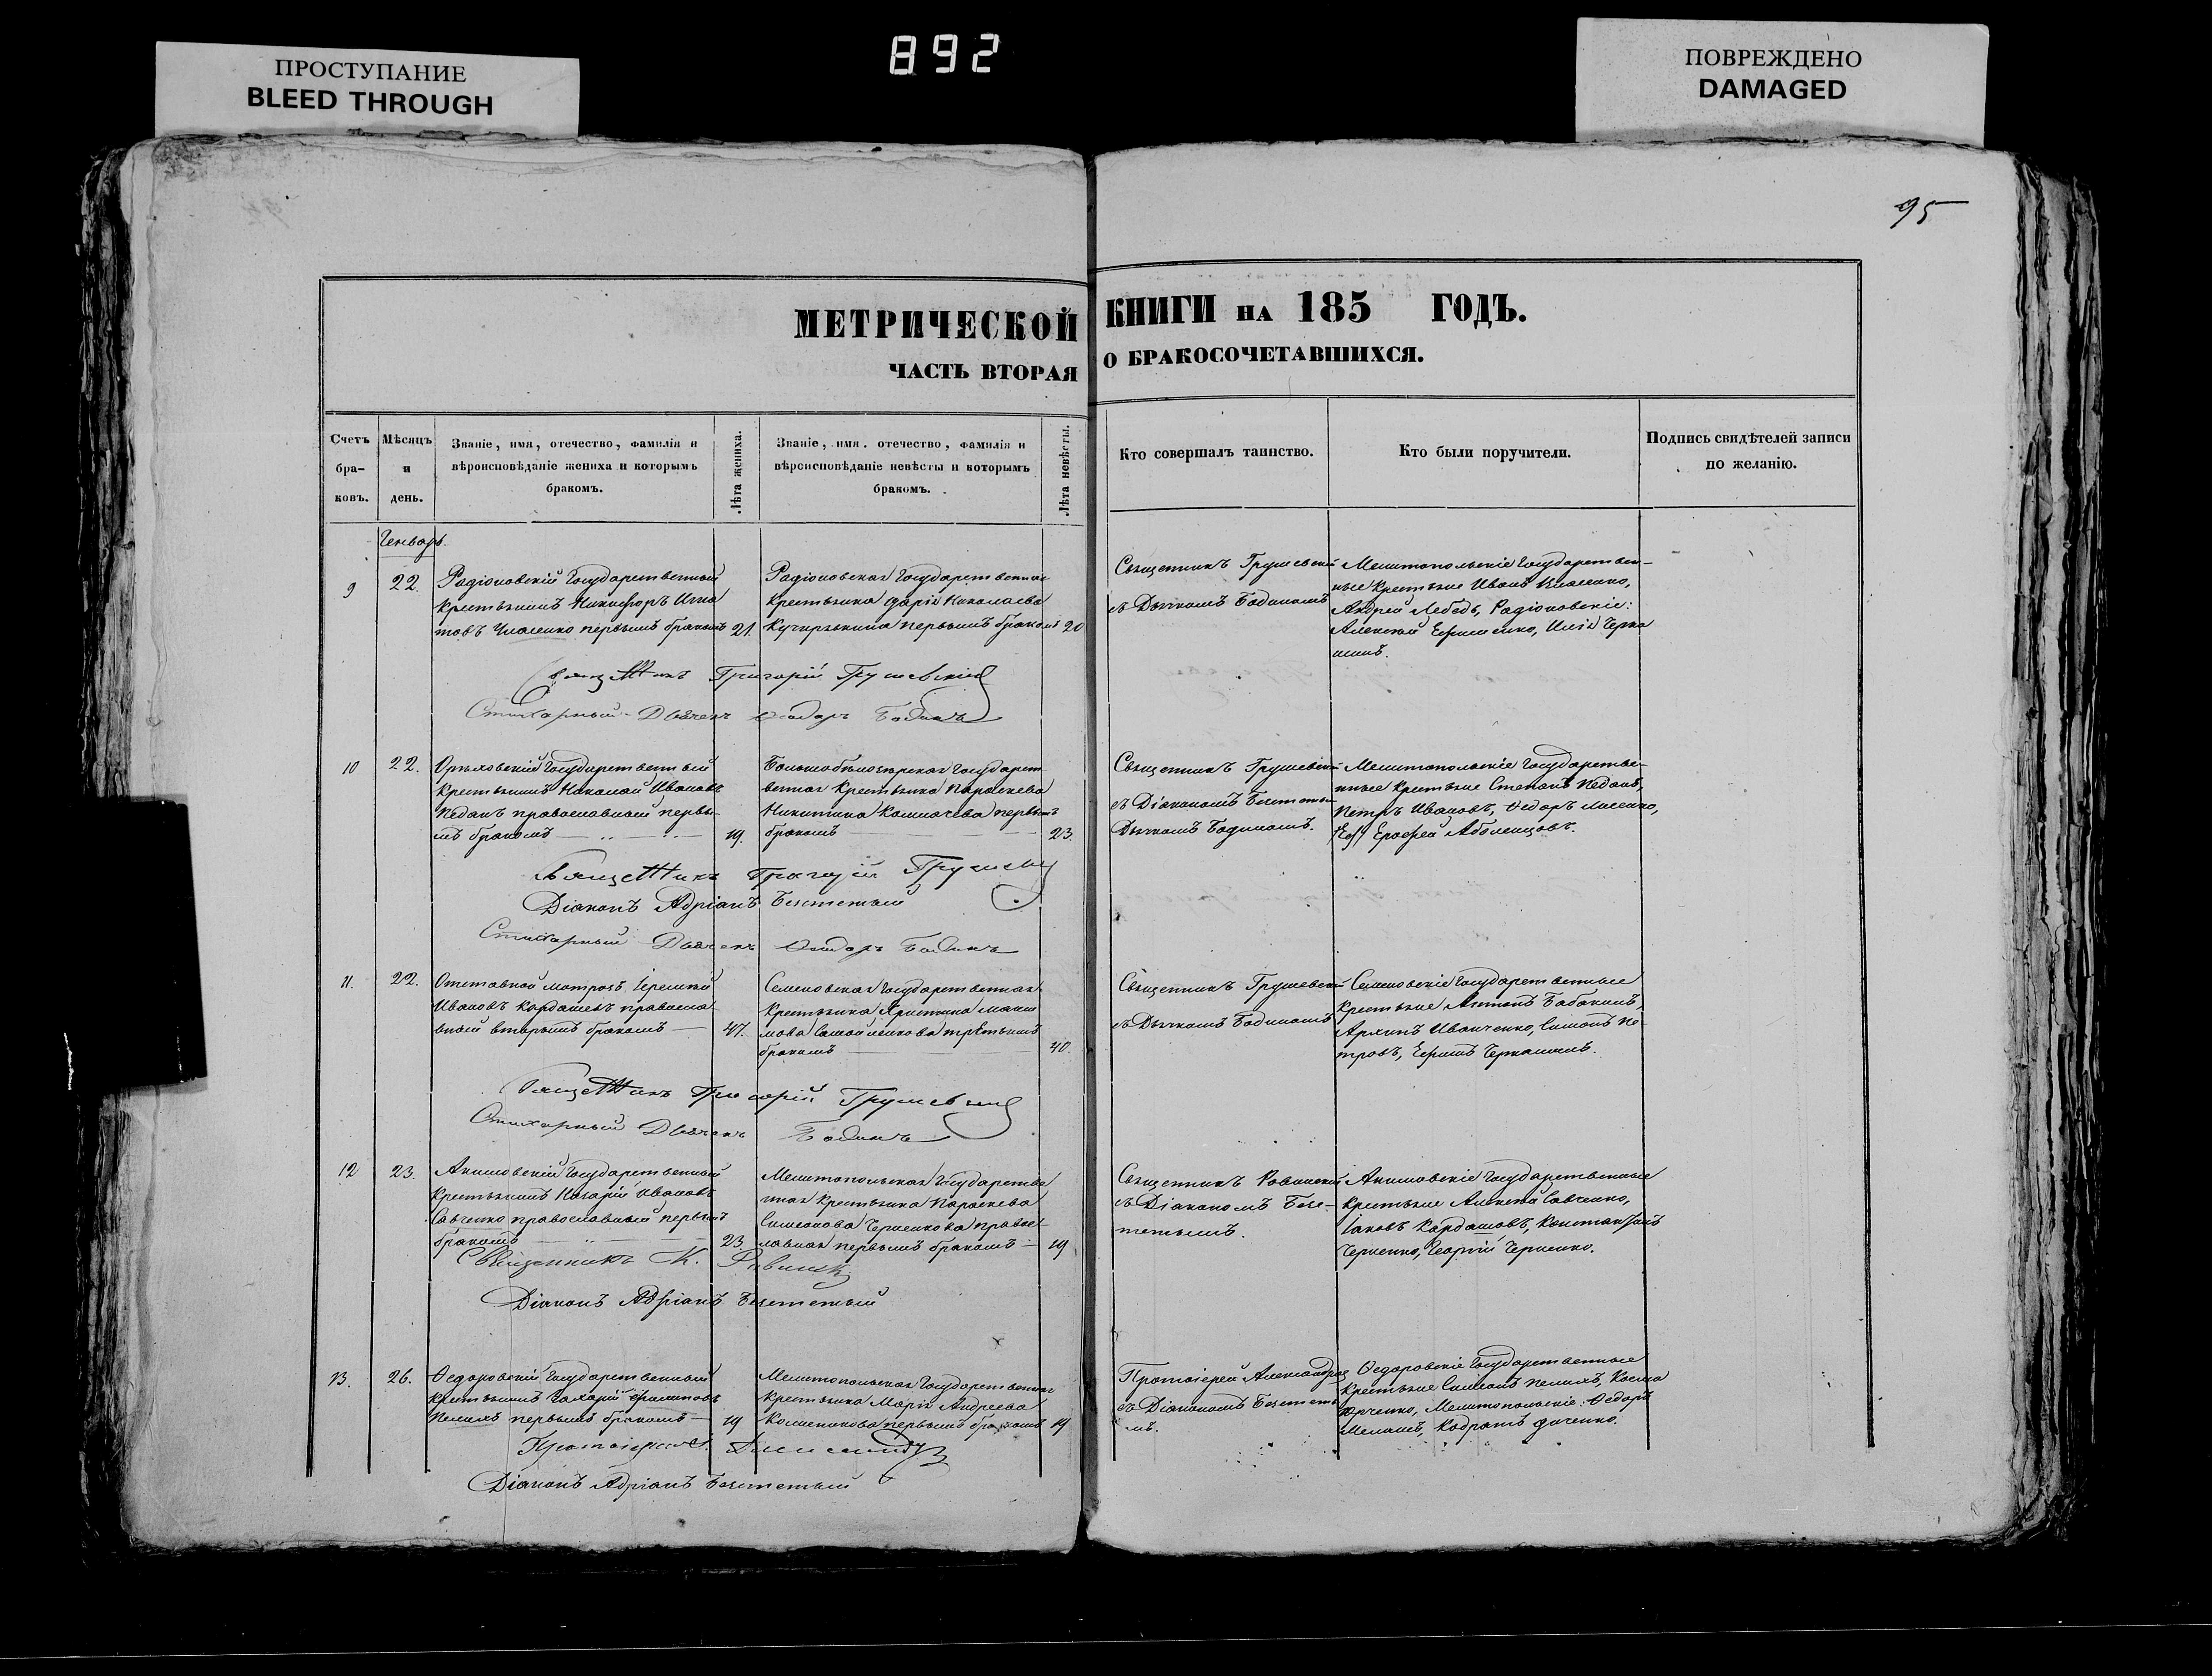 892
ПРОСТУПАНИЕ
BLEED THROUGH
ПОВРЕЖДЕНО
DAMAGED
95
МЕТРИЧЕСКОЙ КНИГИ НА 185 ГОДЪ.
ЧАСТЬ ВТОРАЯ О БРАКОСОЧЕТАВШИХСЯ.
Счетъ бра-ковъ.
Мѣсяцъ и день.
Званіе, имя, отечество, фамилія и
вѣроисповѣданіе жениха и которымъ
бракомъ.
Лѣта жениха.
Званіе, имя. отечество, фамилія и
вѣроисповѣданіе невѣсты и которымъ
бракомъ.
Лѣта невѣсты.
Кто совершалъ таинство.
Кто были поручители.
Подпись свидѣтелей записи
по желанію.
Генварь.
9
22.
Радіоновскій Государственный
крестьянинъ Никифоръ Игна
товъ первымъ бракомъ
21.
Радіоновская Государственная
крестьянка Дарія Николаева
первымъ бракомъ
20
Священникъ Грушевскій
съ Дьячкомъ Бодинамъ
Мелитопольскіе Государствен-
ные крестьяне Иванъ
Андрей Лебедь, Радіоновскіе:
Алексѣй Ефименко, Илія Черка
шинъ.
Священникъ Григорій Грушевскій
Стихарный Дьячекъ Ѳеодоръ Бодинъ
10
22.
Орѣховскій Государственный
крестьянинъ Николай Ивановъ
Педанъ православный первы-
мъ бракомъ
19.
Большебѣлозерская Государст
венная крестьянка Параскева
Никитина Колпачева первымъ
бракомъ
23.
Священникъ Грушевскій
съ Діакономъ
Дьячкомъ Бодинамъ.
Мелитопольскіе Государстве-
нные крестьяне Степанъ Педанъ,
Петръ Ивановъ, Ѳедоръ Лисенко,
Ерофей Аболенцовъ.
Священникъ Григорій Грушевскій
Діаконъ Адріанъ
Стихарный Дьячекъ Ѳеодоръ Бодинъ
11.
22.
Отставной матрозъ Іеремій
Ивановъ Кардашевъ правосла
вный вторымъ бракомъ
47.
Семеновская Государственная
крестьянка Христина Макси
мова Самойленкова третьимъ
бракомъ
40.
Священникъ Грушевскій
съ Дьячкомъ Бодинамъ
Семеновскіе Государственные
крестьяне Антонъ Бабакинъ,
Архипъ Иванченко, Симонъ Пе-
тровъ, Ефимъ Черкашинъ.
Священникъ Григорій Грушевскій
Стихарный Дьячекъ Бодинъ
12
23.
Акимовскій Государственный
крестьянинъ Назарій Ивановъ
Савченко православный первымъ
бракомъ
23.
Мелитопольская Государстве
нная крестьянка Параскева
Симеонова Черненкова правос-
лавная первымъ бракомъ
19
Священникъ
съ Діакономъ
Акимовскіе Государственные
крестьяне Алексѣй Савченко,
Іаковъ Кардашовъ, Константинъ
Черненко, Георгій Черненко.
Священникъ М.
Діаконъ Адріанъ
13.
26.
Ѳедоровскій Государственный
крестьянинъ Захарій Филиповъ
Пелихъ первымъ бракомъ
19
Мелитопольская Государственная
крестьянка Марія Андреева
первымъ бракомъ
19
Протоіерей Александровъ
съ Діакономъ
мъ.
Ѳедоровскіе Государственные
крестьяне Симеонъ Пелихъ, Косма
Юрченко, Мелитопольскіе: Ѳедоръ
Меланъ, Кодратъ Даценко.
Протоіерей
Діаконъ Адріанъ